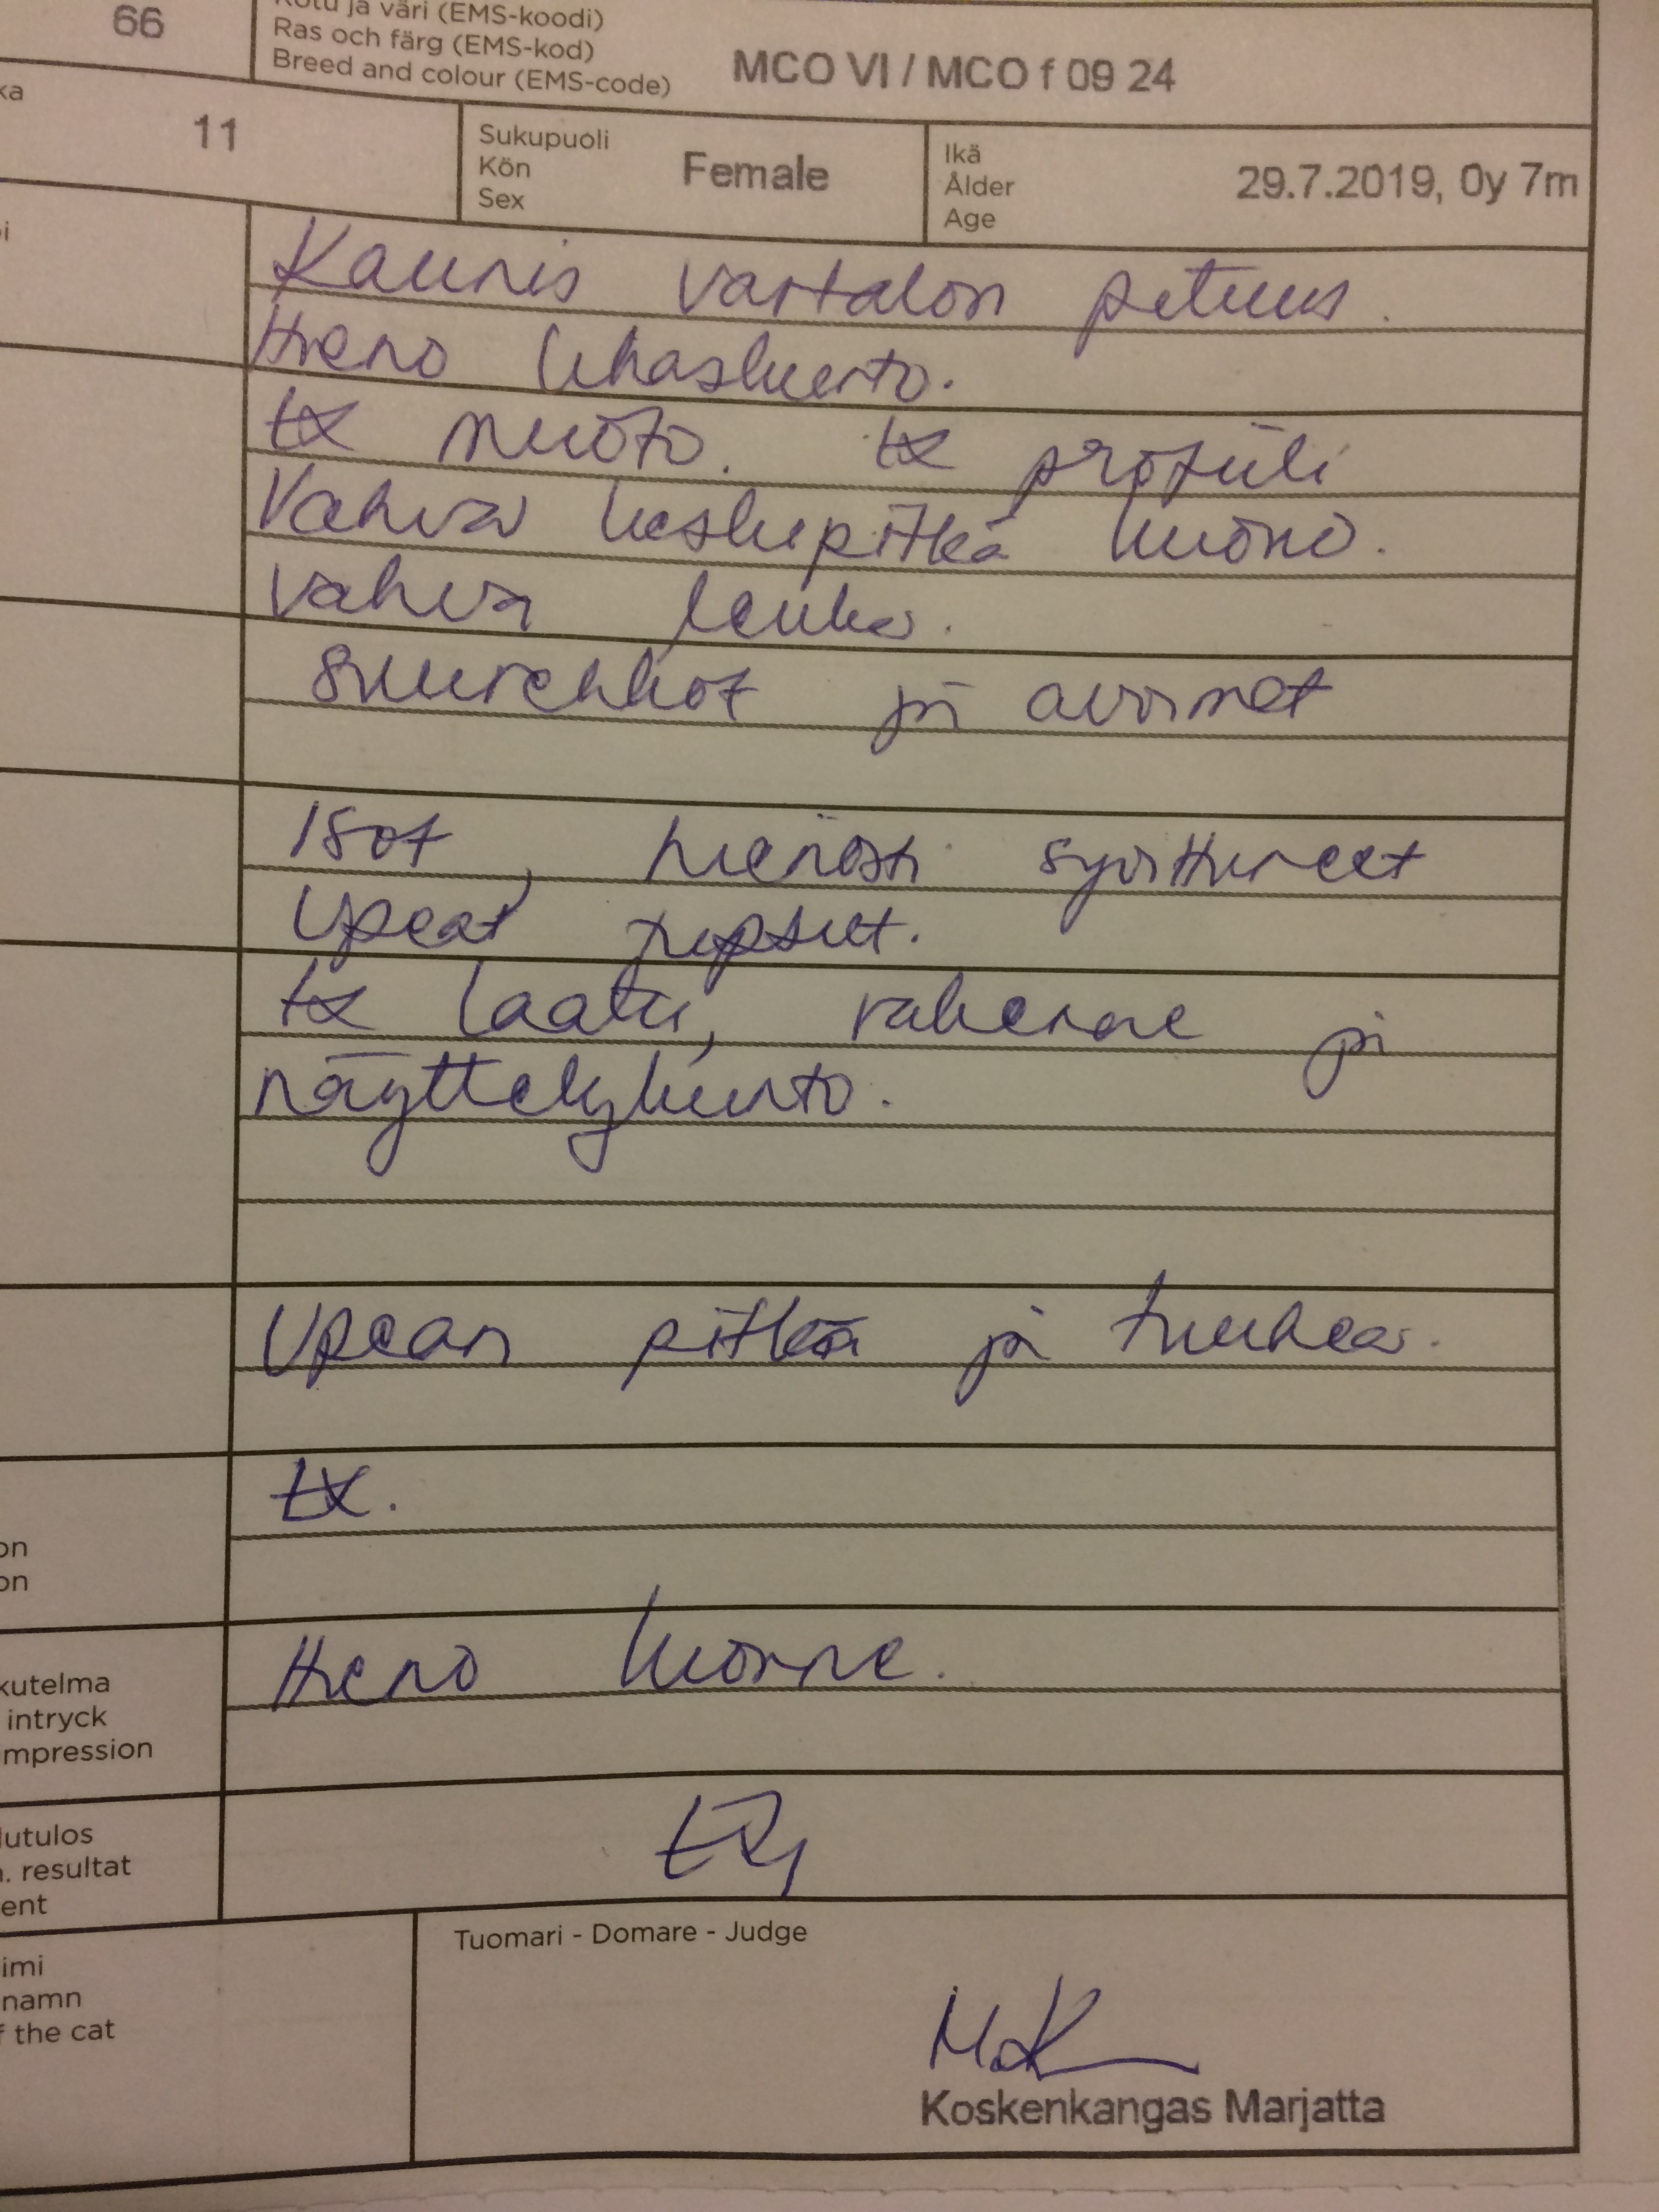 66
Rotu ja väri (EMS-koodi)
Ras och färg (EMS-kod)
Breed and colour (EMS-code)
MCO VI / MCO f 09 24
ka
11
Sukupuoli
Kön
Sex
Female
Ikä
Ålder
Age
29.7.2019, 0y 7m
Kaunis vartalon pituus.
Hieno lihaskunto.
Ex muoto. Ex profiili
Vahva keskipitkä kuono.
Vahva leuka.
Suurehkot ja avoimet
Isot, hienosti sijoittuneet
Upeat tupsut.
Ex laatu, rakenne ja
näyttelykunto.
Upean pitkä ja tuuhea.
Ex.
on
on
Hieno luonne.
kutelma
intryck
mpression
lutulos
. resultat
ent
Ex1
imi
namn
f the cat
Tuomari - Domare - Judge
MK
Koskenkangas Marjatta